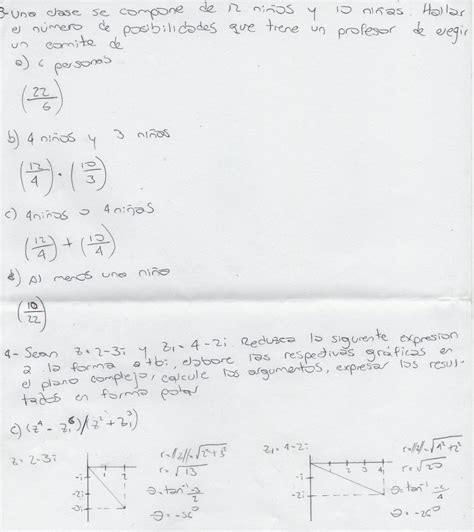 3- Una clase se compone de 12 niños y 10 niñas. Hallar
el número de posibilidades que tiene un profesor de elegir
un comite de
a) 6 personas
(22/6)
b) 4 niños y 3 niñas
(12/4) · (10/3)
c) 4 niños o 4 niñas
(12/4) + (10/4)
d) Al menos una niña
(10/22)
4- Sean z=2-3i y z₁=4-2i. Reduzca la siguiente expresion
a la forma a+bi, elabore las respectivas gráficas en
el plano complejo, calcule los argumentos, expresar los resul-
tados en forma polar
c) (z⁴ - z₁⁶)/(z² + z₁³)
z=2-3i
1 2
-i
-2i
r=||z||=√2²+3²
r=√13
θ=tan⁻¹
θ=-56°
z₁=4-2i
1 2 3 4
-i
-2i
r=||z||=√4²+2²
r=√20
θ=tan⁻¹ -2/4
θ=-26°